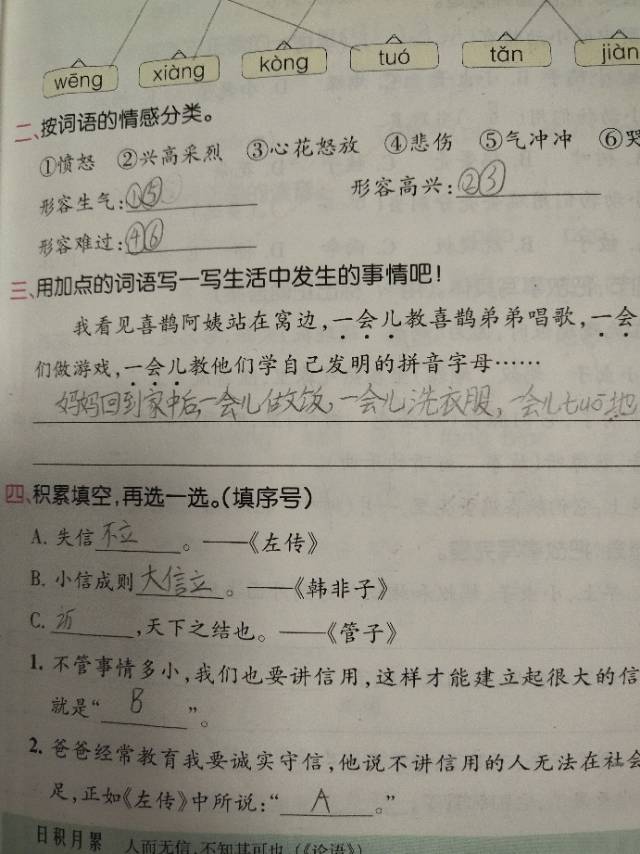 wēng xiàng kòng tuó tǎn jiàn
二、按词语的情感分类。
①愤怒 ②兴高采烈 ③心花怒放 ④悲伤 ⑤气冲冲 ⑥哭
形容生气:①⑤ 形容高兴:②③
形容难过:④⑥
三、用加点的词语写一写生活中发生的事情吧!
我看见喜鹊阿姨站在窝边,一会儿教喜鹊弟弟唱歌,一会
们做游戏,一会儿教他们学自己发明的拼音字母……
妈妈回到家中后,一会儿做饭,一会儿洗衣服,一会儿tuō地
四、积累填空,再选一选。(填序号)
A. 失信不立。——《左传》
B. 小信成则大信立。——《韩非子》
C. ,天下之结也。——《管子》
1. 不管事情多小,我们也要讲信用,这样才能建立起很大的信
就是“B”。
2. 爸爸经常教育我要诚实守信,他说不讲信用的人无法在社会
足,正如《左传》中所说:“A。”
日积月累 人而无信,不知其可也。(《论语》)